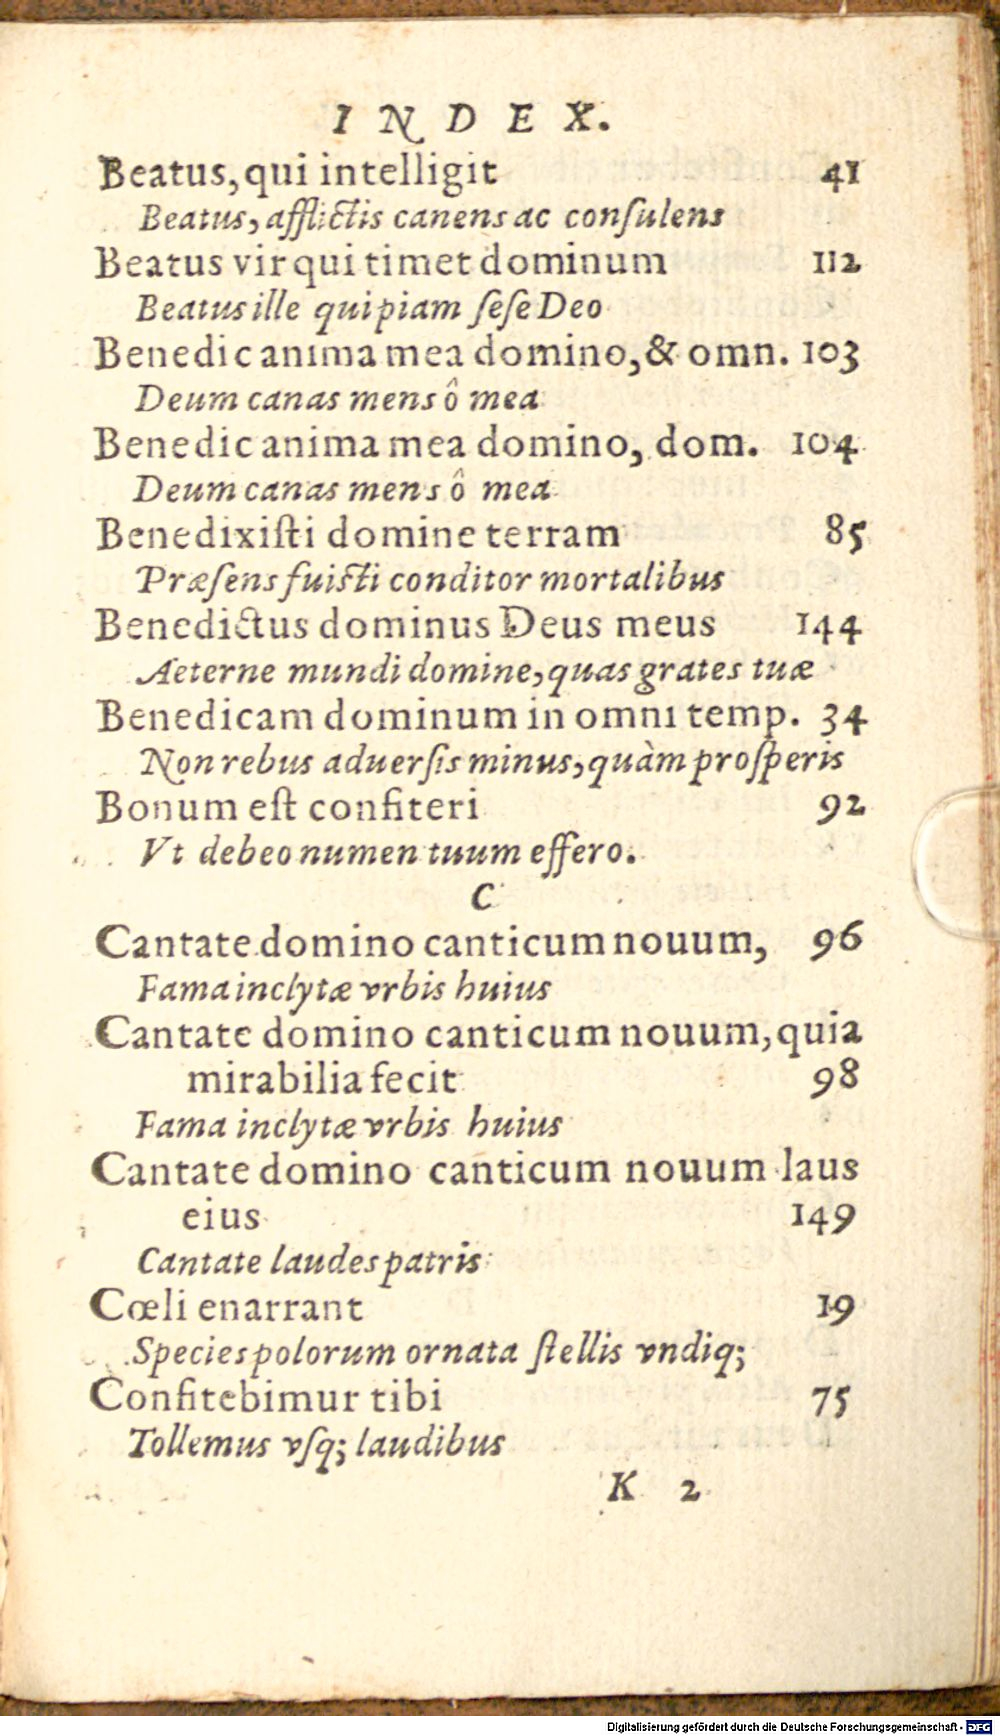 INDEX.
Beatus, qui intelligit 41
Beatus, afflictis canens ac conſulens
Beatus vir qui timet dominum 112
Beatus ille qui piam ſeſe Deo
Benedic anima mea domino, & omn. 103
Deum canas mens ô mea
Benedic anima mea domino, dom. 104
Deum canas mens ô mea
Benedixiſti domine terram 85
Præſens fuiſti conditor mortalibus
Benedictus dominus Deus meus 144
Aeterne mundi domine, quas grates tuæ
Benedicam dominum in omni temp. 34
Non rebus aduerſis minus, quàm proſperis
Bonum eſt confiteri 92
Vt debeo numen tuum effero.
C
Cantate domino canticum nouum, 96
Fama inclytæ vrbis huius
Cantate domino canticum nouum, quia
mirabilia fecit 98
Fama inclytæ vrbis huius
Cantate domino canticum nouum laus
eius 149
Cantate laudes patris
Cœli enarrant 19
Species polorum ornata ſtellis vndiq;
Confitebimur tibi 75
Tollemus vſq; laudibus
K 2
Digitalisierung gefördert durch die Deutsche Forschungsgemeinschaft - DFG